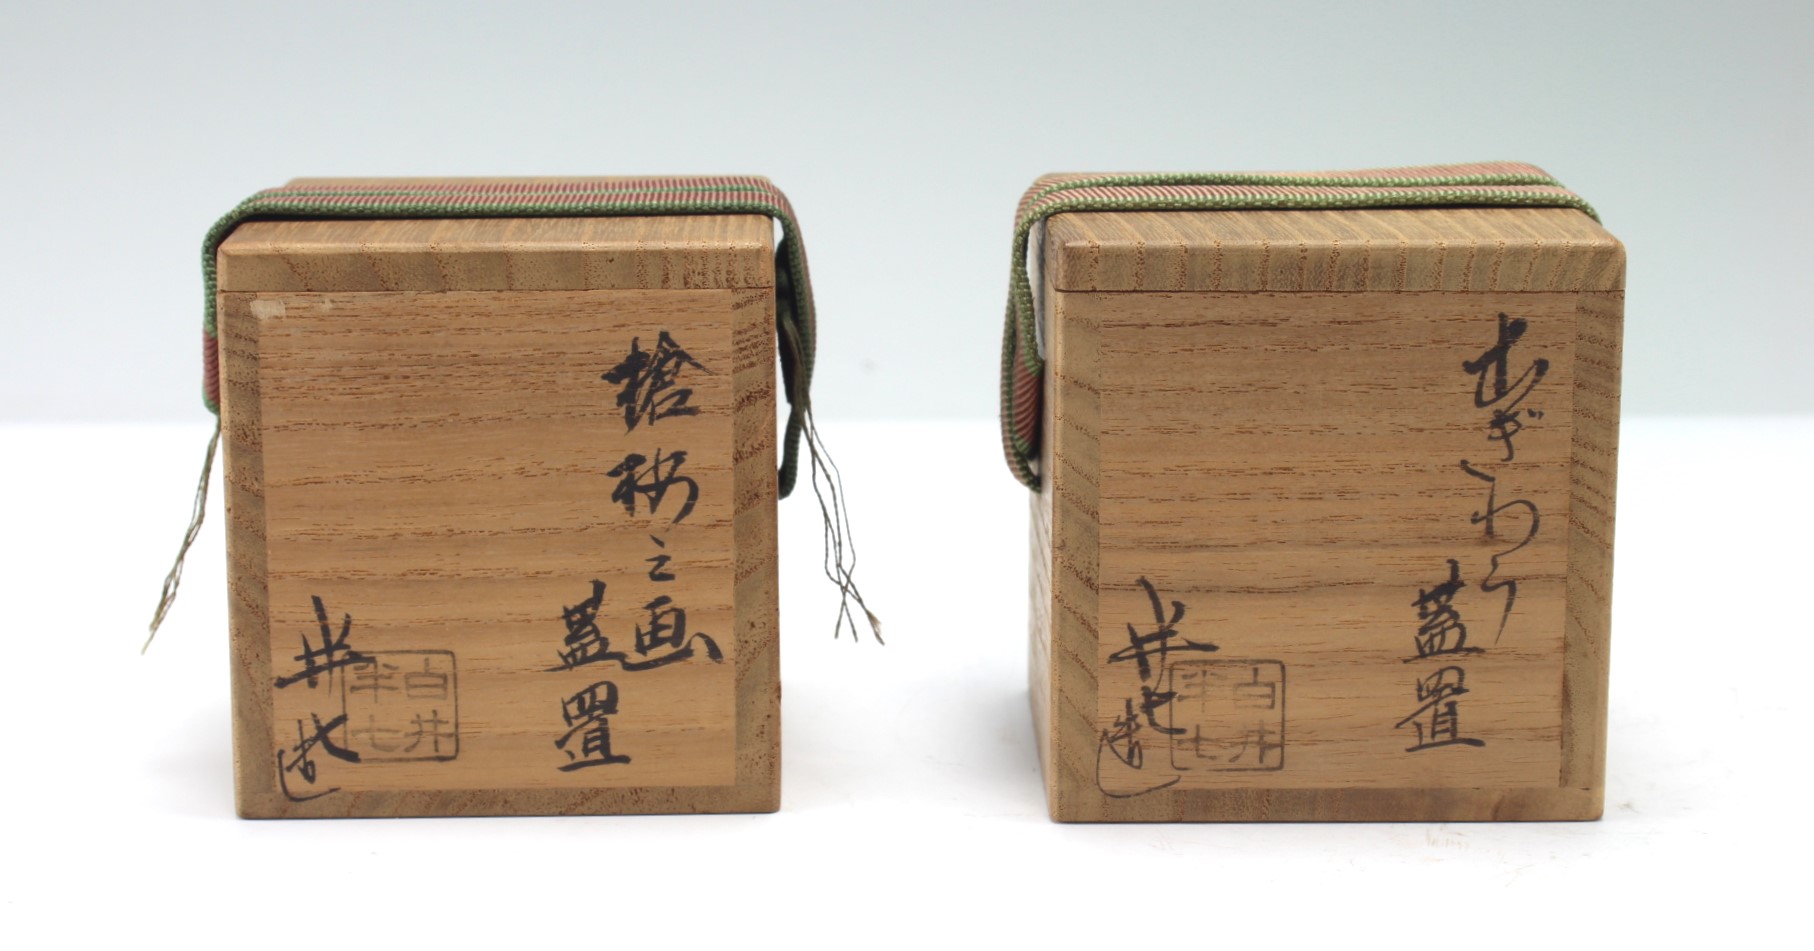 槍梅之画
蓋置
半七造
白井
半七
むぎわら
蓋置
半七造
白井
半七